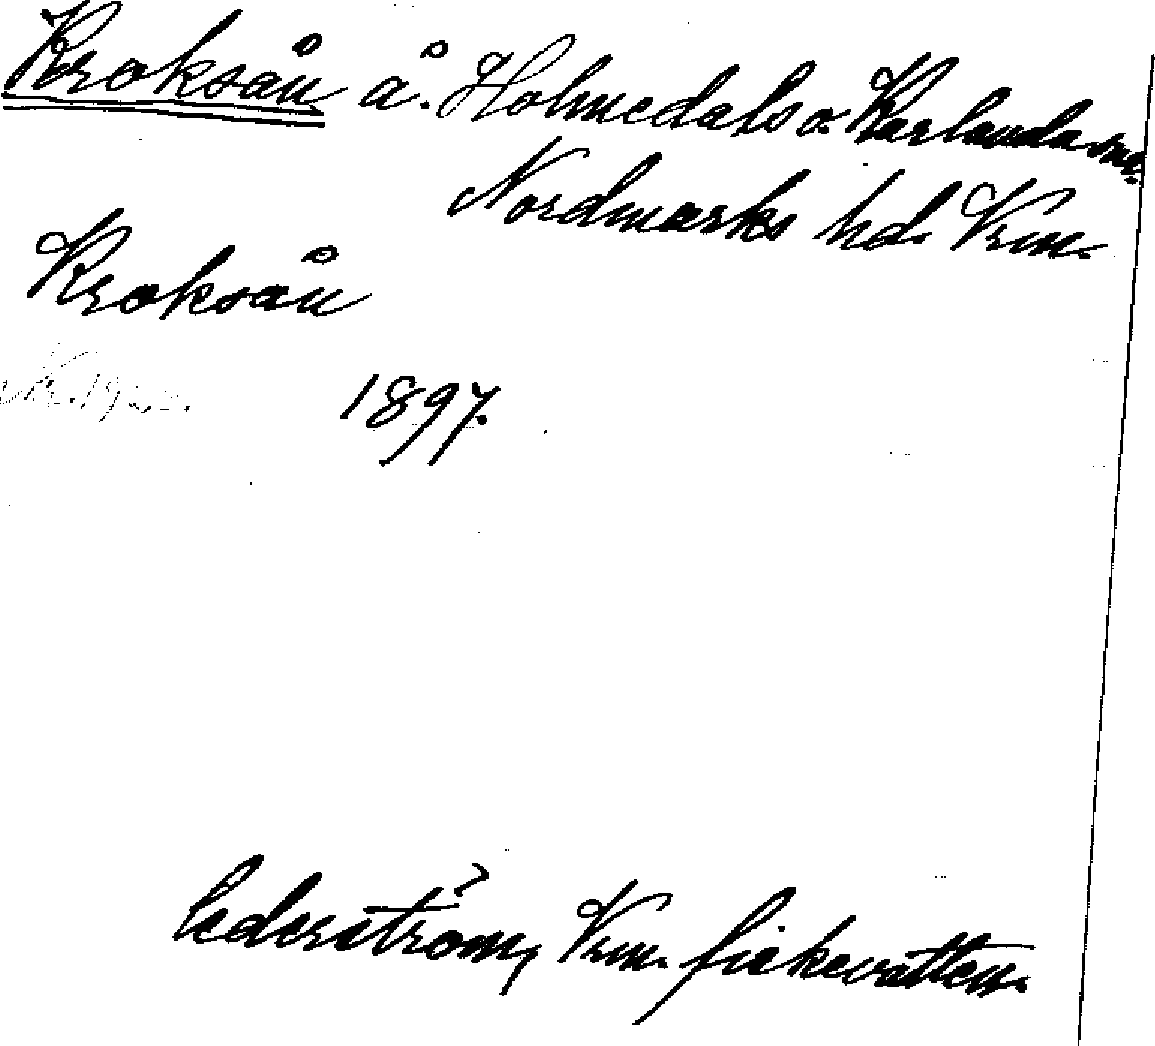 Kroksån å. Holmedals o. Karlanda snr.
Nordmarks hd. Vrm.
Kroksån
1897.
Cederström, Vrm. fiskevatten.